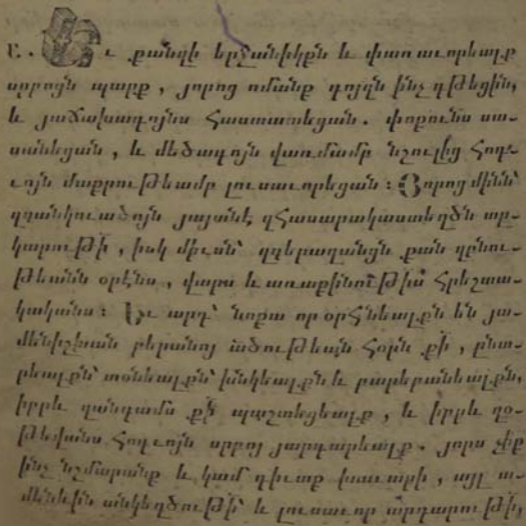 Ե. Եւ քանզի երջանիկքն և փառաւորեալք
սրբոյն պարք, յորոց ոմանք գոյզն ինչ դթեցին,
և յաճախագոյնս հաստատեցան. փոքունս սա-
սանեցան, և մեծագոյն վառմամբ նշուլից հոգ-
ւոյն մաքրութեամբ լուսաւորեցան: Յորոց մինն՝
զգանկուածոյն յայտնէ զհասարակաստեղծն տը-
կարութի, իսկ միւսն՝ զգերազանցն քան զբնու-
թեանն օրէնս, վարս և առաքինութիս հրեշտա-
կականս: Եւ արդ՝ նոքա որ օրհնեալքն են յա-
մենիշխան բերանոյ ածութեայն հօրն քի, ընտ-
րեալքն՝ տօնեալքն՝ խնկեալքն և բարեբանեալքն,
իբրև զանդամս քց պաշտեցեալք, և իբրև զօ-
թեվանս հոգւոյն սրբոյ յարդարեալք. յորս չիք
ինչ նշմարանք և կամ դիւաք խաւարի, այլ ա-
մենևին անկեղծութի՝ և լուսաւոր արդարութի,